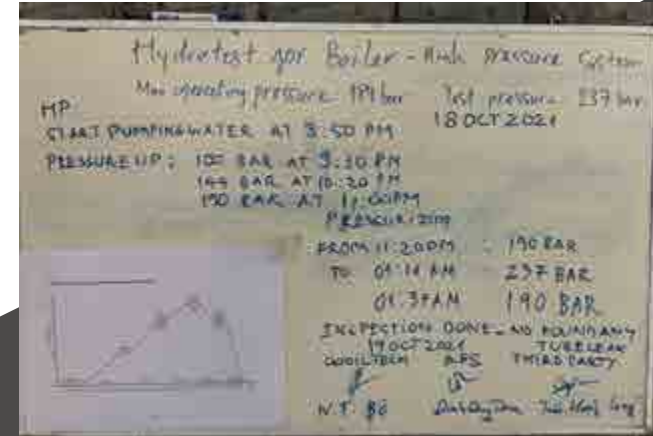 Hydrotest for Boiler - High pressure System
Max operating pressure 189 bar Test pressure 237 bar
HP 18 OCT 2021
START PUMPING WATER AT 8:50 PM
PRESSURE UP: 100 BAR AT 9:30 PM
144 BAR AT 10:20 PM
190 BAR AT 11:00PM
PRESSURIZING
FROM 11:20PM : 190 BAR
TO 01:10 AM 237 BAR
01:37AM 190 BAR
INSPECTION DONE - NO FOUND ANY
19 OCT 2021 TUBE LEAK
THIRD PARTY
N.T. Bé